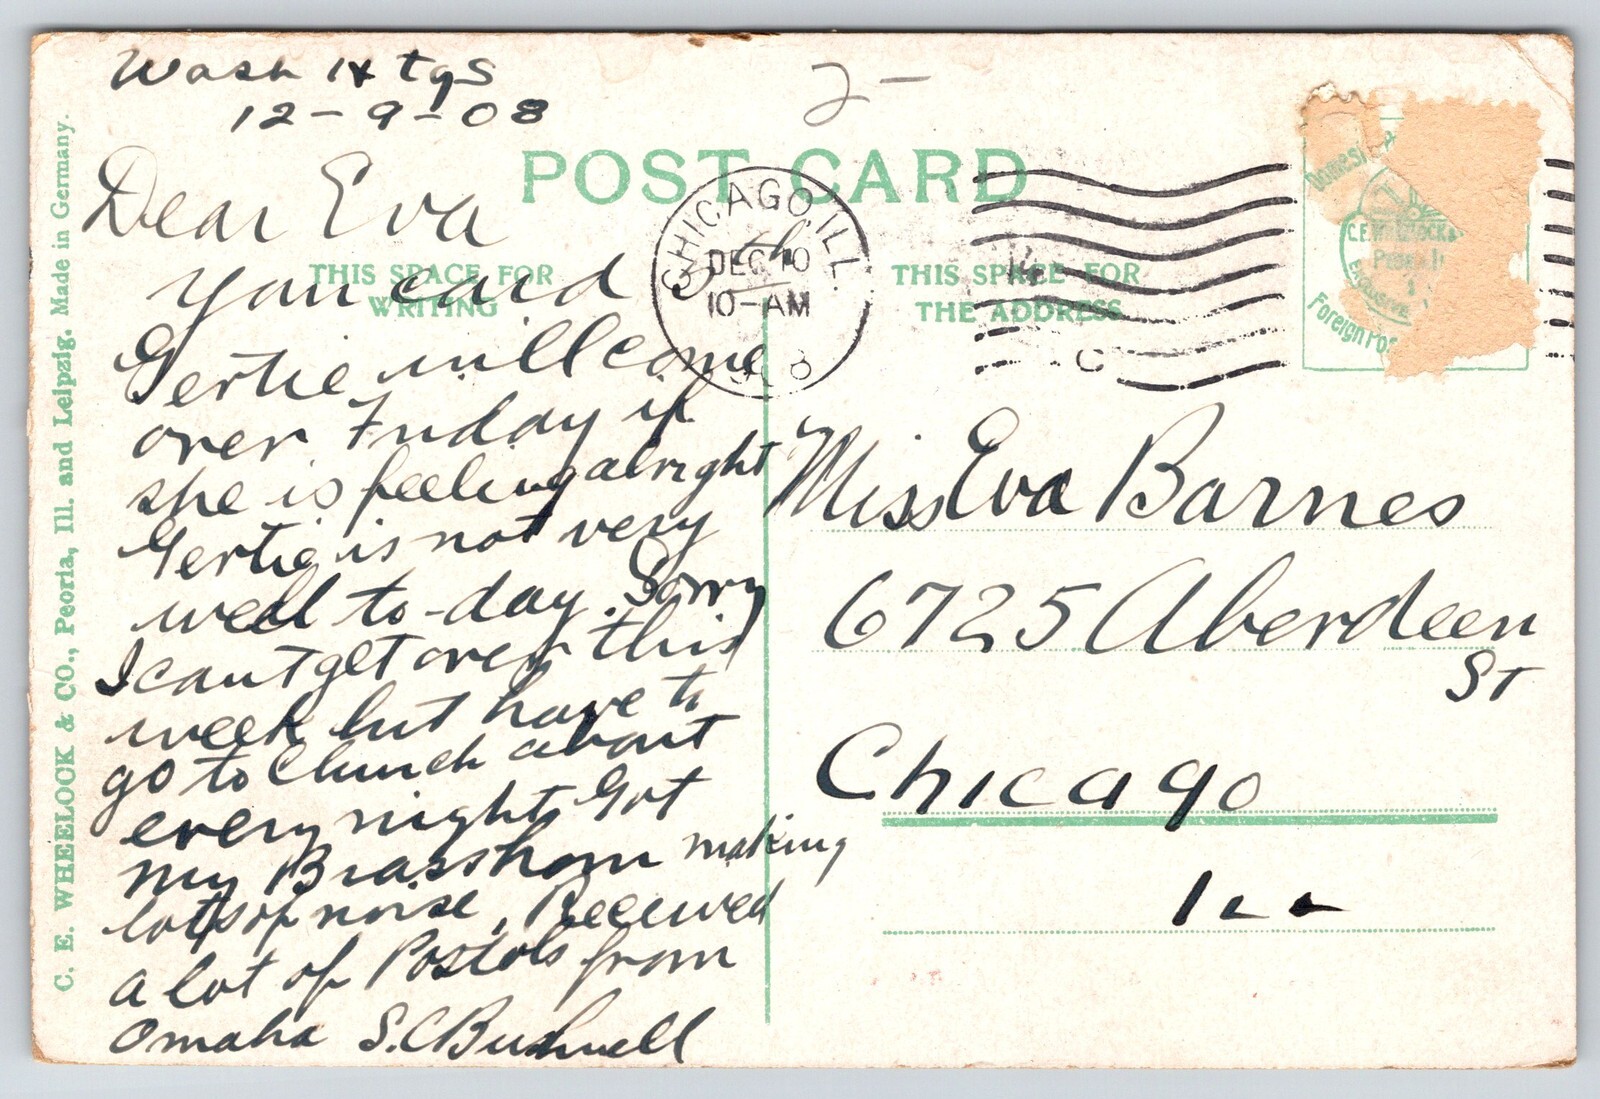 Wash Htgs
12-9-08
2-
POST CARD
CHICAGO, ILL.
DEC 10
10-AM
8
C
THIS SPACE FOR
WRITING
THIS SPACE FOR
THE ADDRESS
Domesti
C.E. WHEELOCK &
Peoria Il
EXCLUSIVE
Foreign Pos
Dear Eva
Your card 5th
Gertie will come
over Friday if
she is feeling alright
Gertie is not very
well to-day. Sorry
I cant get over this
week but have to
go to Church about
every night Got
my Brasshorn making
lots of noise. Received
a lot of Postols from
Omaha S.C Bushnell
Miss Eva Barnes
6725 Aberdeen
ST
Chicago
Ill
C. E. WHEELOCK & CO., Peoria, Ill. and Leipzig. Made in Germany.